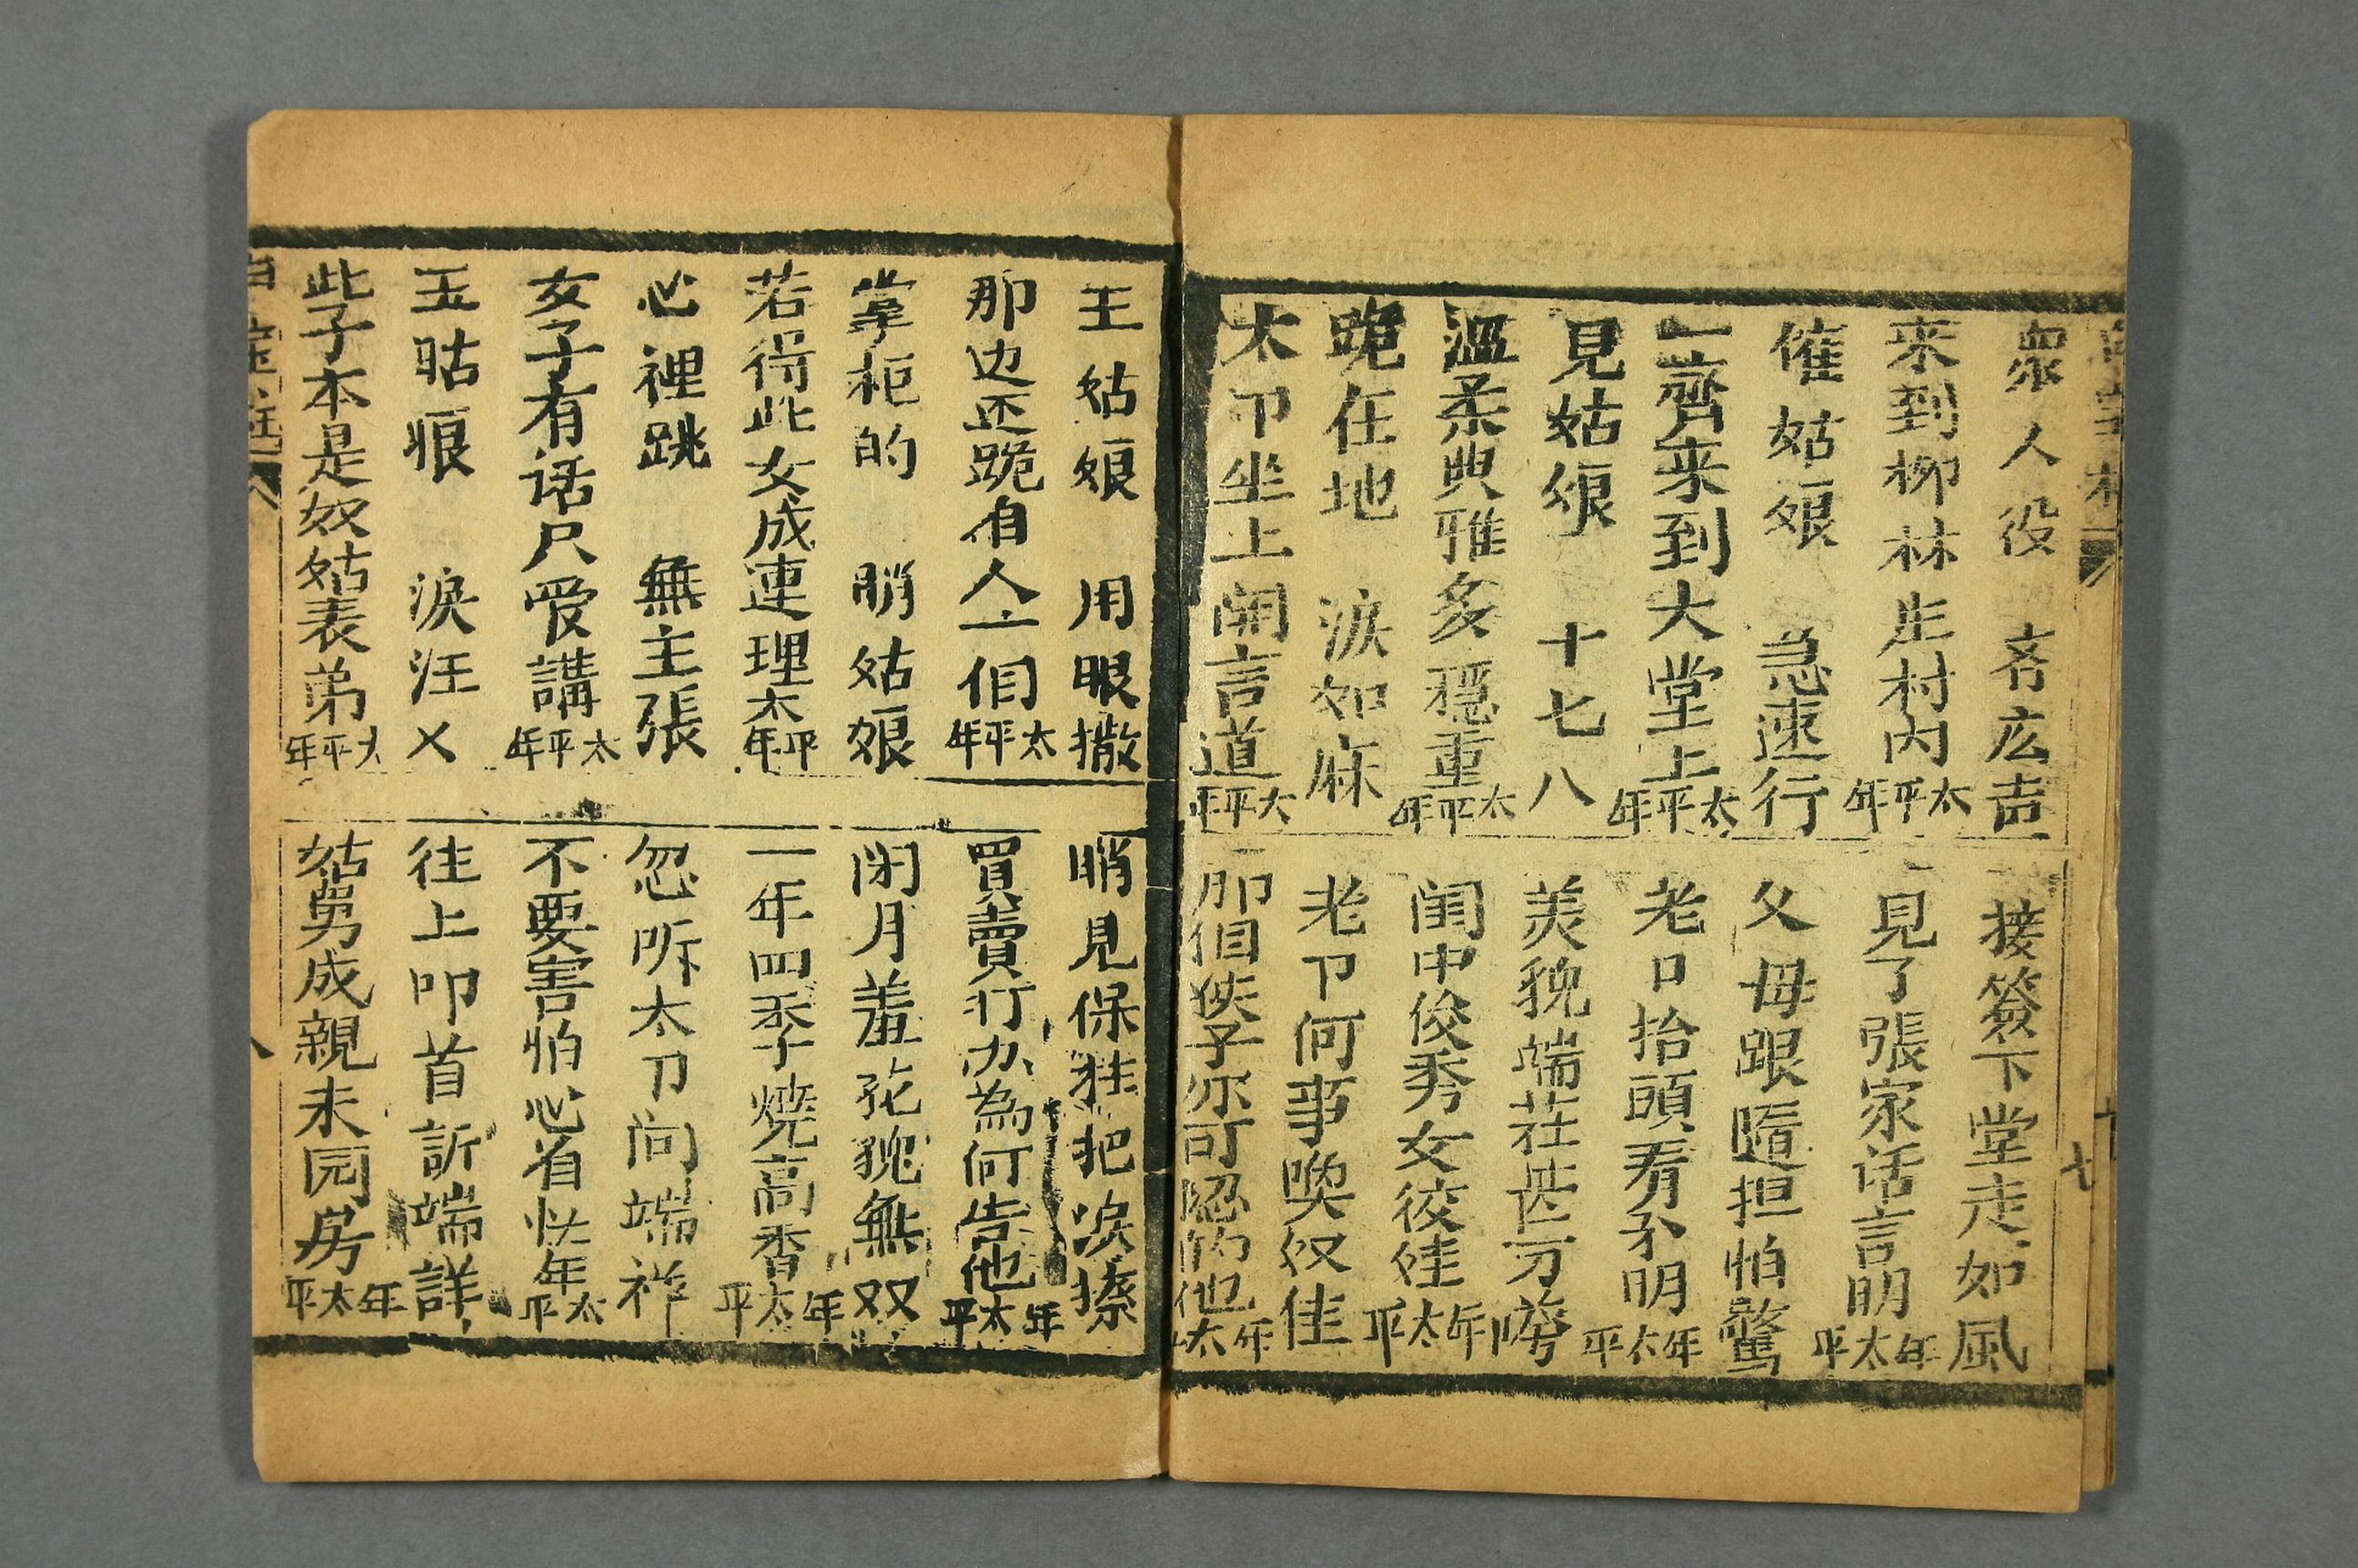 衆人役 斉広声
接簽下堂走如風
来到柳林庄村内太平年
見了張家话言明年太平
催姑娘 急速行
父母跟隨担怕驚
一齊来到大堂上太平年
老口抬頭看分明年太平
見姑娘 十七八
美貌端荘甚可誇
溫柔典雅多穩重太平年
閨中俊秀女姣娃年太平
跪在地 淚如麻
老卩何事喚奴佳
太卩坐上開言道太平年
那個俠子尔可認的他年太
王姑娘 用眼撒
睄見保狂把淚搽
那边还跪有人一個太平年
買賣行亦為何告他年太平
掌柜的 睄姑娘
閉月羞花貌無双
若得此女成連理太平年
一年四季燒高香年太平
心裡跳 無主張
忽听太刀问端祥
女子有话尺受講太平年
不要害怕心着忙年太平
玉姑娘 淚汪乂
往上叩首訴端詳
此子本是奴姑表弟太平年
姑舅成親未园房年太平
七